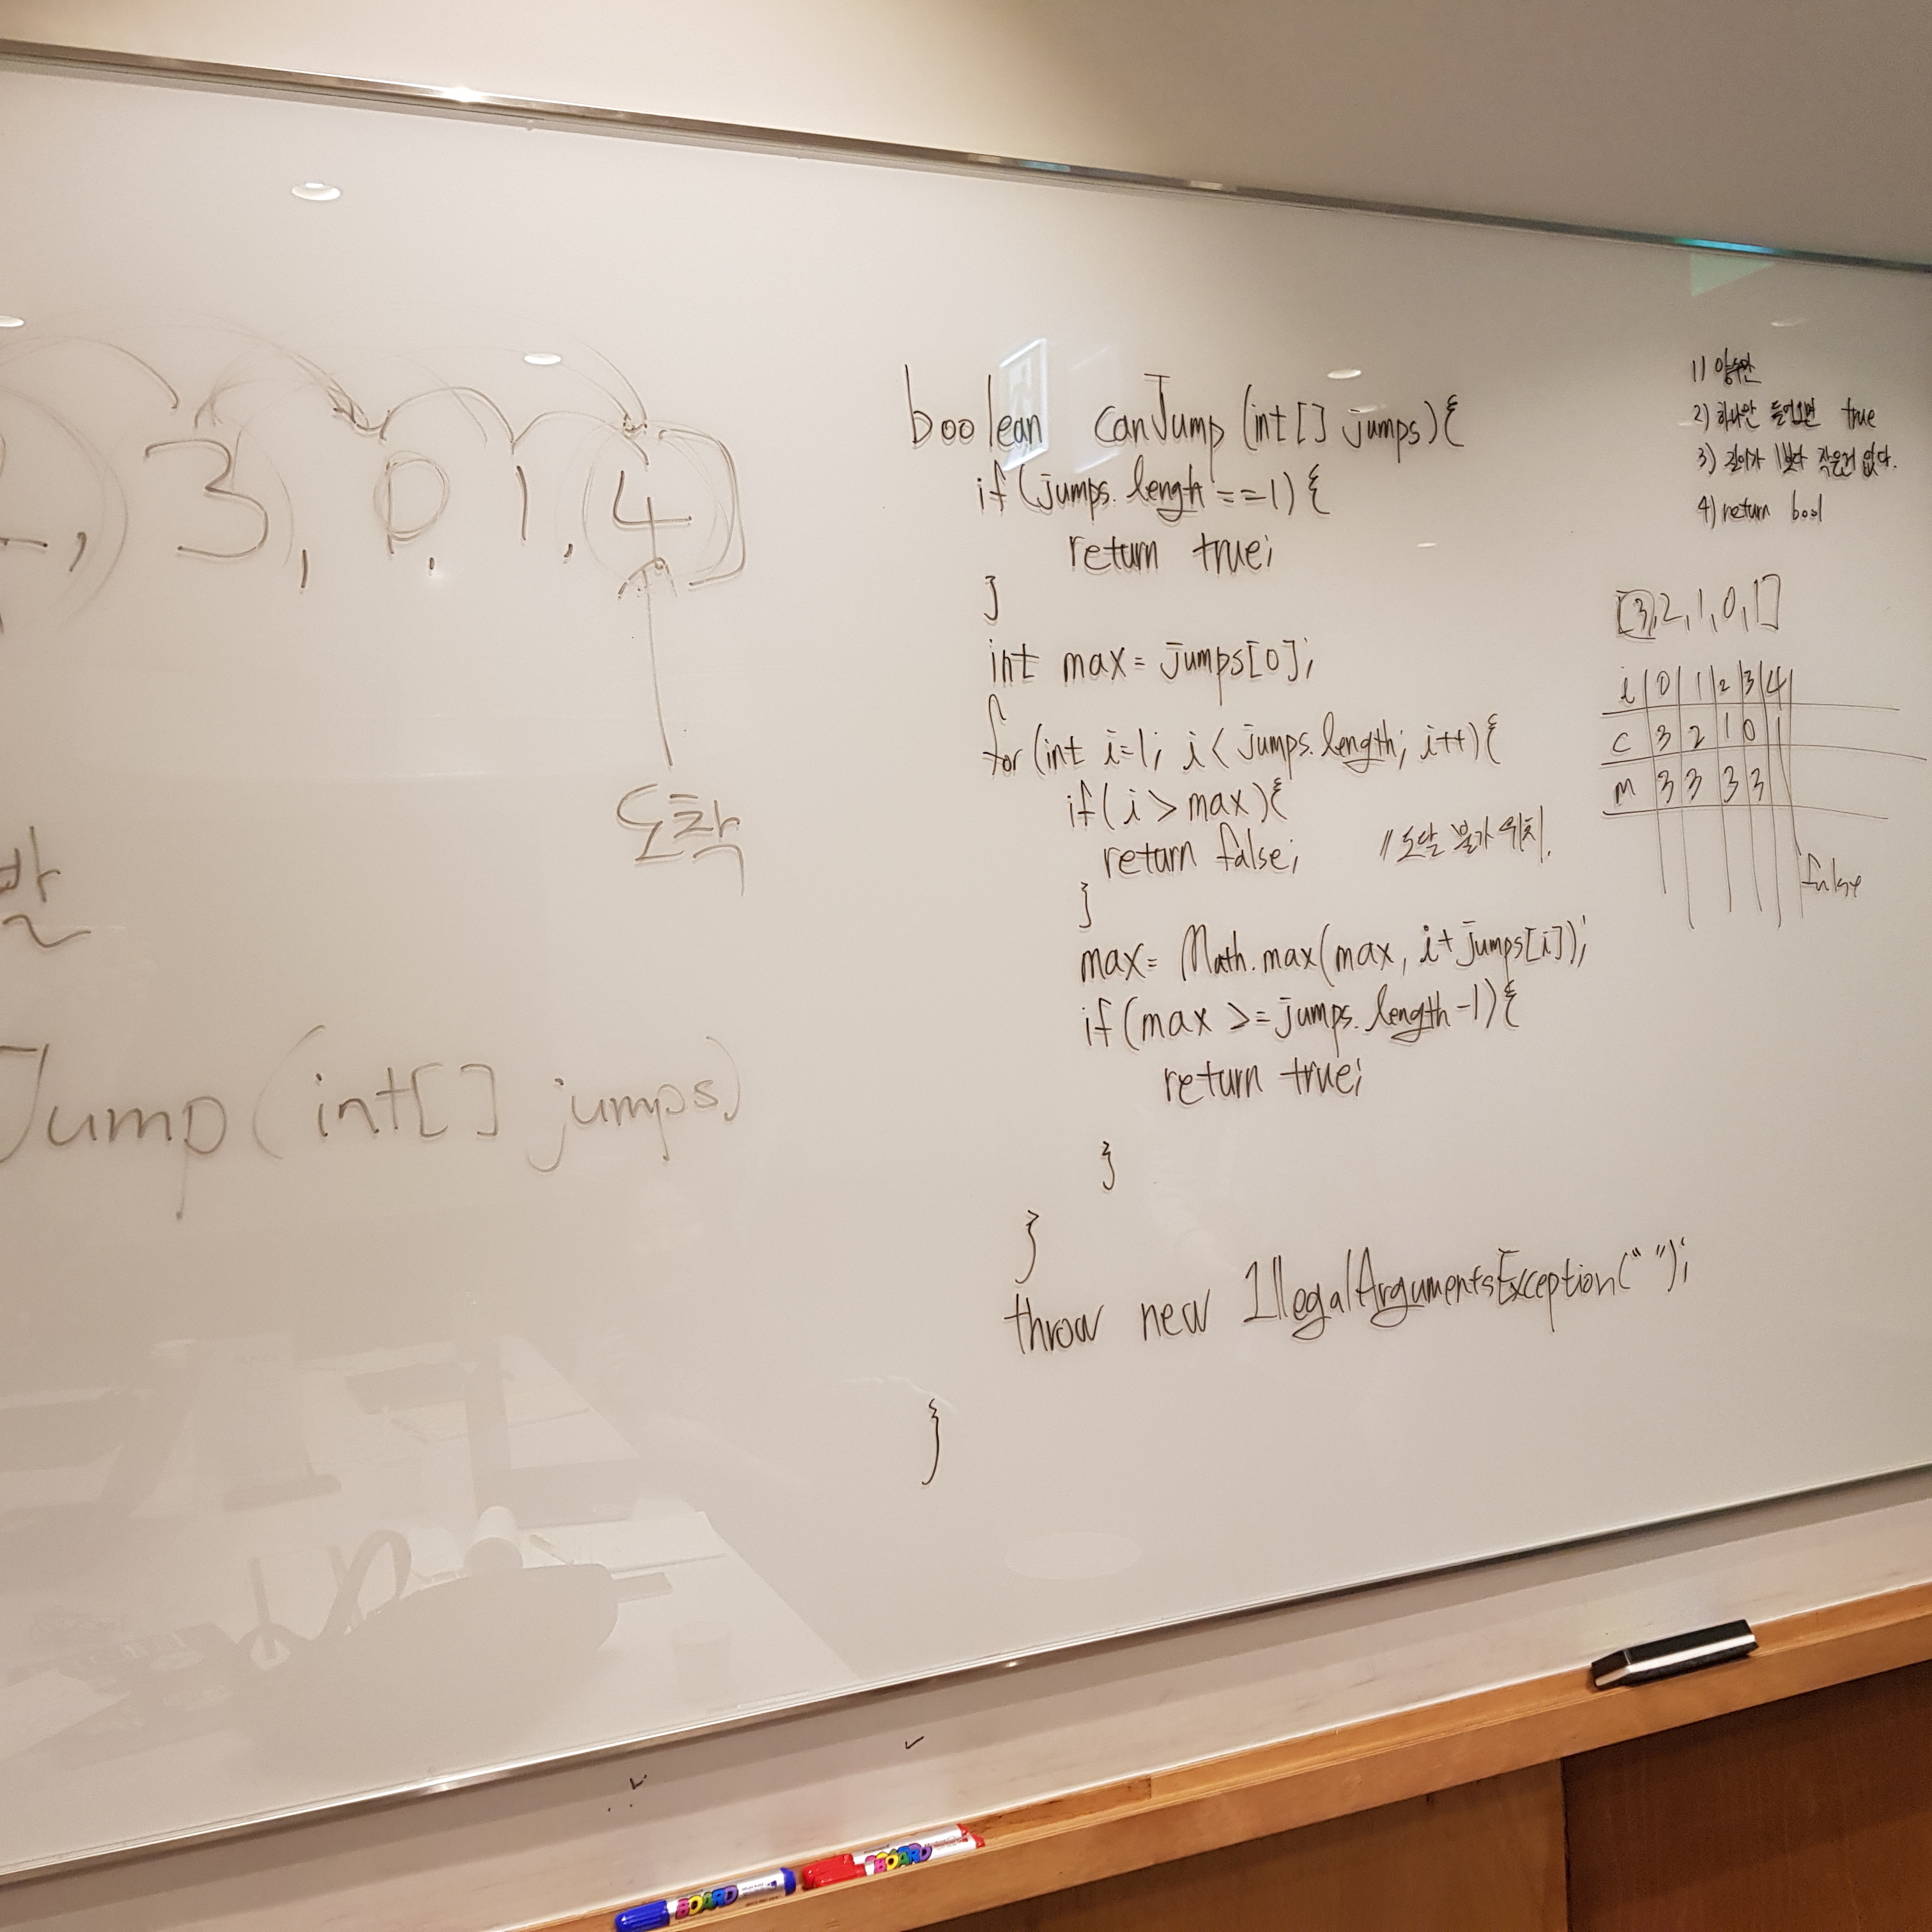 3, 0, 1, 4]
도착
발
Jump(int[] jumps)
boolean canJump (int[] jumps){
if (jumps.lengh==1){
return true;
}
int max= jumps[0];
for (int i=1; i< jumps.length; i++){
if(i > max){
return false; //도달 불가 위치.
}
max= Math.max(max, i+jumps[i]);
if(max >= jumps.length-1){
return true;
}
}
throw new IllegalArgumentsException(" ");
}
1) 양수만
2) 하나만 들어오면 true
3) 길이가 1보다 작은건 없다.
4) return bool
[3,2,1,0,1]
i 0 1 2 3 4
c 3 2 1 0 1
m 3 3 3 3
false
BOARD
BOARD